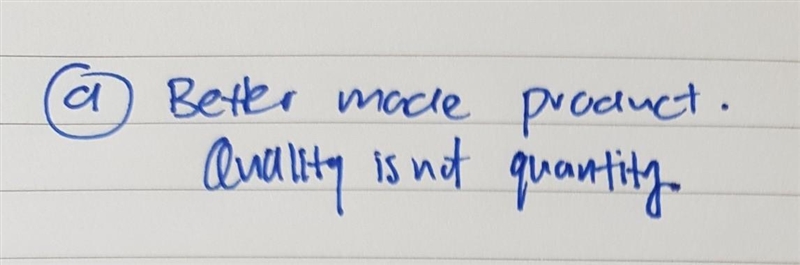 a Better made product.
Quality is not quantity.